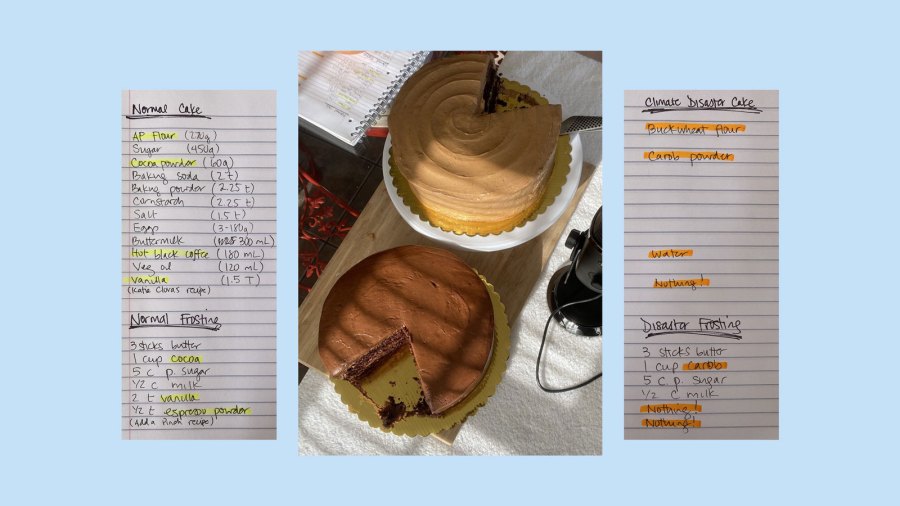 Normal Cake
AP flour (270g)
Sugar (450g)
Cocoa powder (60g)
Baking soda (2 t)
Baking powder (2.25 t)
Cornstarch (2.25 t)
Salt (1.5 t)
Eggs (3-180g)
Buttermilk (300 mL)
Hot black coffee (180 mL)
Veg oil (120 mL)
Vanilla (1.5 T)
(Katie Cloras recipe)
Normal Frosting
3 sticks butter
1 cup cocoa
5 c p. sugar
1/2 c milk
2 t vanilla
1/2 t espresso powder
(Add a Pinch recipe)
Climate Disaster Cake
Buckwheat flour
Carob powder
Water
Nothing!
Disaster Frosting
3 sticks butter
1 cup carob
5 c p. sugar
1/2 c milk
Nothing!
Nothing!